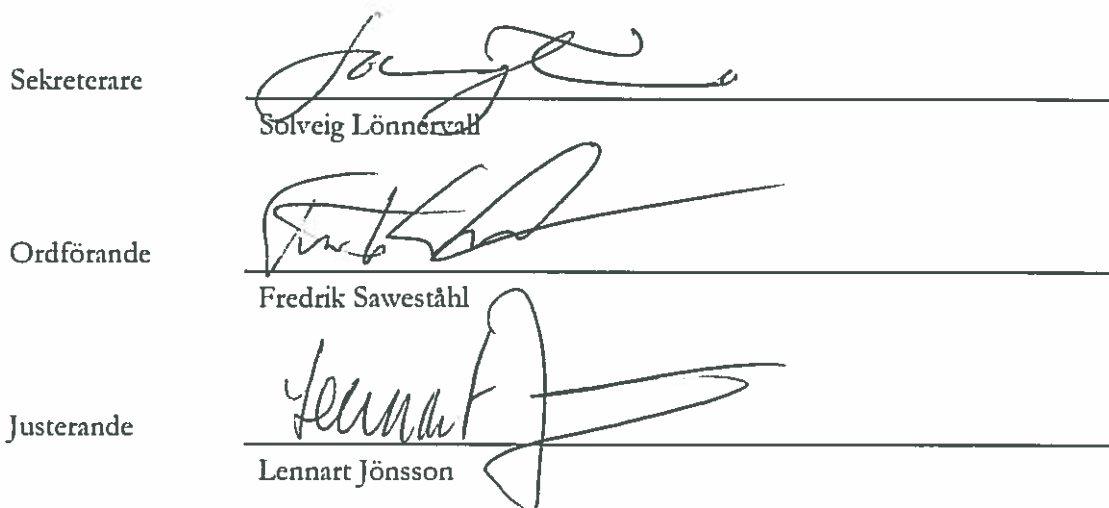 Sekreterare
Solveig Lönnervall
Ordförande
Fredrik Sawestähl
Justerande
Lennart
Lennart Jönsson